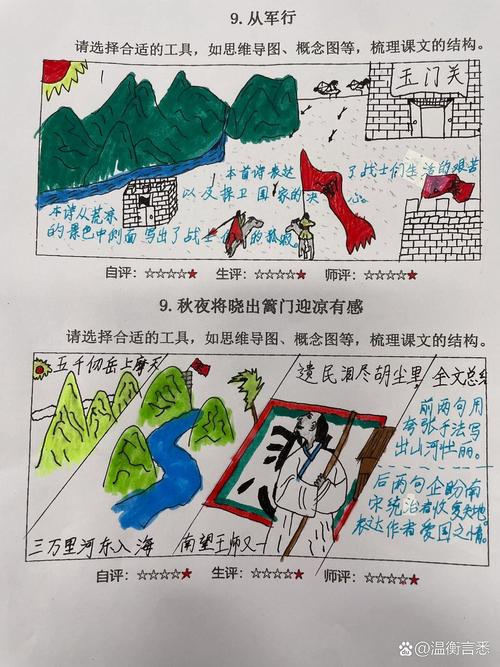 9.从军行
请选择合适的工具，如思维导图、概念图等，梳理课文的结构。
玉门关
本首诗表达了战士们生活的艰苦
以及保卫国家的决心。
本诗从荒凉
的景色中侧面写出了战士们的孤寂。
自评：☆☆☆☆★ 生评：☆☆☆☆★ 师评：☆☆☆☆★
9.秋夜将晓出篱门迎凉有感
请选择合适的工具，如思维导图、概念图等，梳理课文的结构。
五千仞岳上摩天
遗民泪尽胡尘里
全文总结
前两句用
夸张手法写
出山河壮丽。
后两句企盼南
宋统治者收复失地
表达作者爱国之情。
三万里河东入海
南望王师又一
自评：☆☆☆☆★ 生评：☆☆☆☆★ 师评：☆☆☆☆★
Bai百家号@温衡言悉